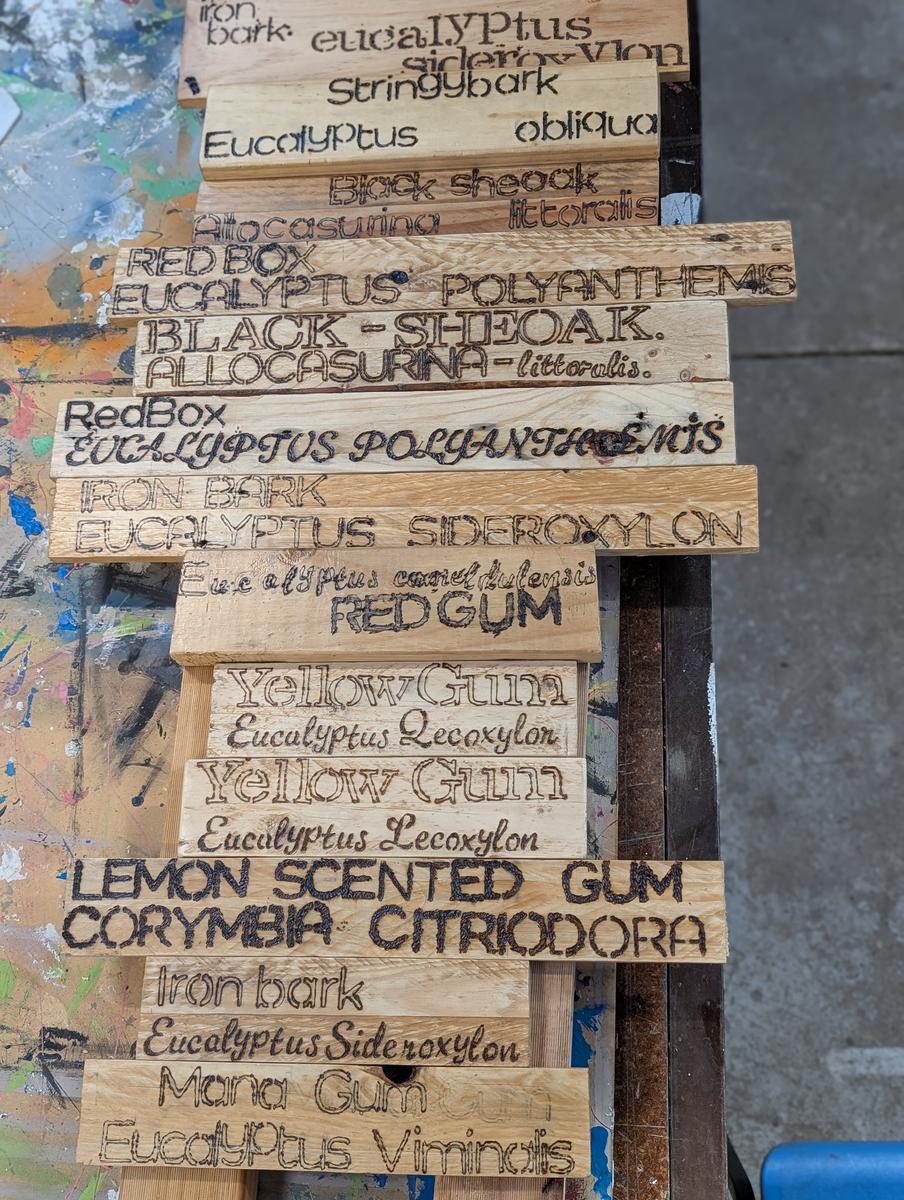 iron
bark.
eucalyptus
sideroxylon
Stringybark
Eucalyptus obliqua
Black sheoak
Allocasurina littoralis
RED BOX
EUCALYPTUS POLYANTHEMIS
BLACK - SHEOAK.
ALLOCASURINA - littoralis.
RedBox
EUCALYPTUS POLYANTHEMIS
IRON BARK
EUCALYPTUS SIDEROXYLON
Eucalyptus cameldulensis
RED GUM
Yellow Gum
Eucalyptus Lecoxylon
Yellow Gum
Eucalyptus Lecoxylon
LEMON SCENTED GUM
CORYMBIA CITRIODORA
Iron bark
Eucalyptus Sideroxylon
Mana Gum Gum
Eucalyptus Viminalis